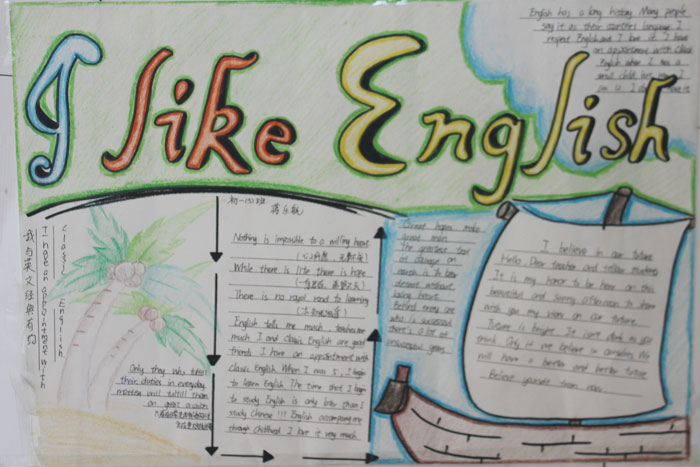 I like English
English has a long history Many people
say it as their countries language I
respect English and I love it I have
an appointment with classic
English when I was a
small child, but now I
am
我与英文经典有约
I have an appointment with
Classic English
初一(5)班
Nothing is impossible to a willing heart
While there is life there is hope
There is no royal road to learning
English tells me much, teaches me
much I and Classic English are good
friends I have an appointment with
classic English When I was 5, I begin
to learn English The time that I begin
to study English is only later than I
study Chinese !!! English accompany me
through Childhood I love it very much
Only they who fulfill
their duties in everyday
matters will fulfill them
on great occasion
Great hopes make
great man
The greatest test
of courage on
earth is to bear
defeat without
losing heart
Behind every one
who is successful
there's a lot of
years
I believe in our future
Hello, Dear teacher and fellow students
It is my honor to be here on this
beautiful and sunny afternoon to share
with you my views on our future
Future is bright It isn't dark as you
think Only if we believe in ourselves We
will have a better and better future
Believe yourself from now